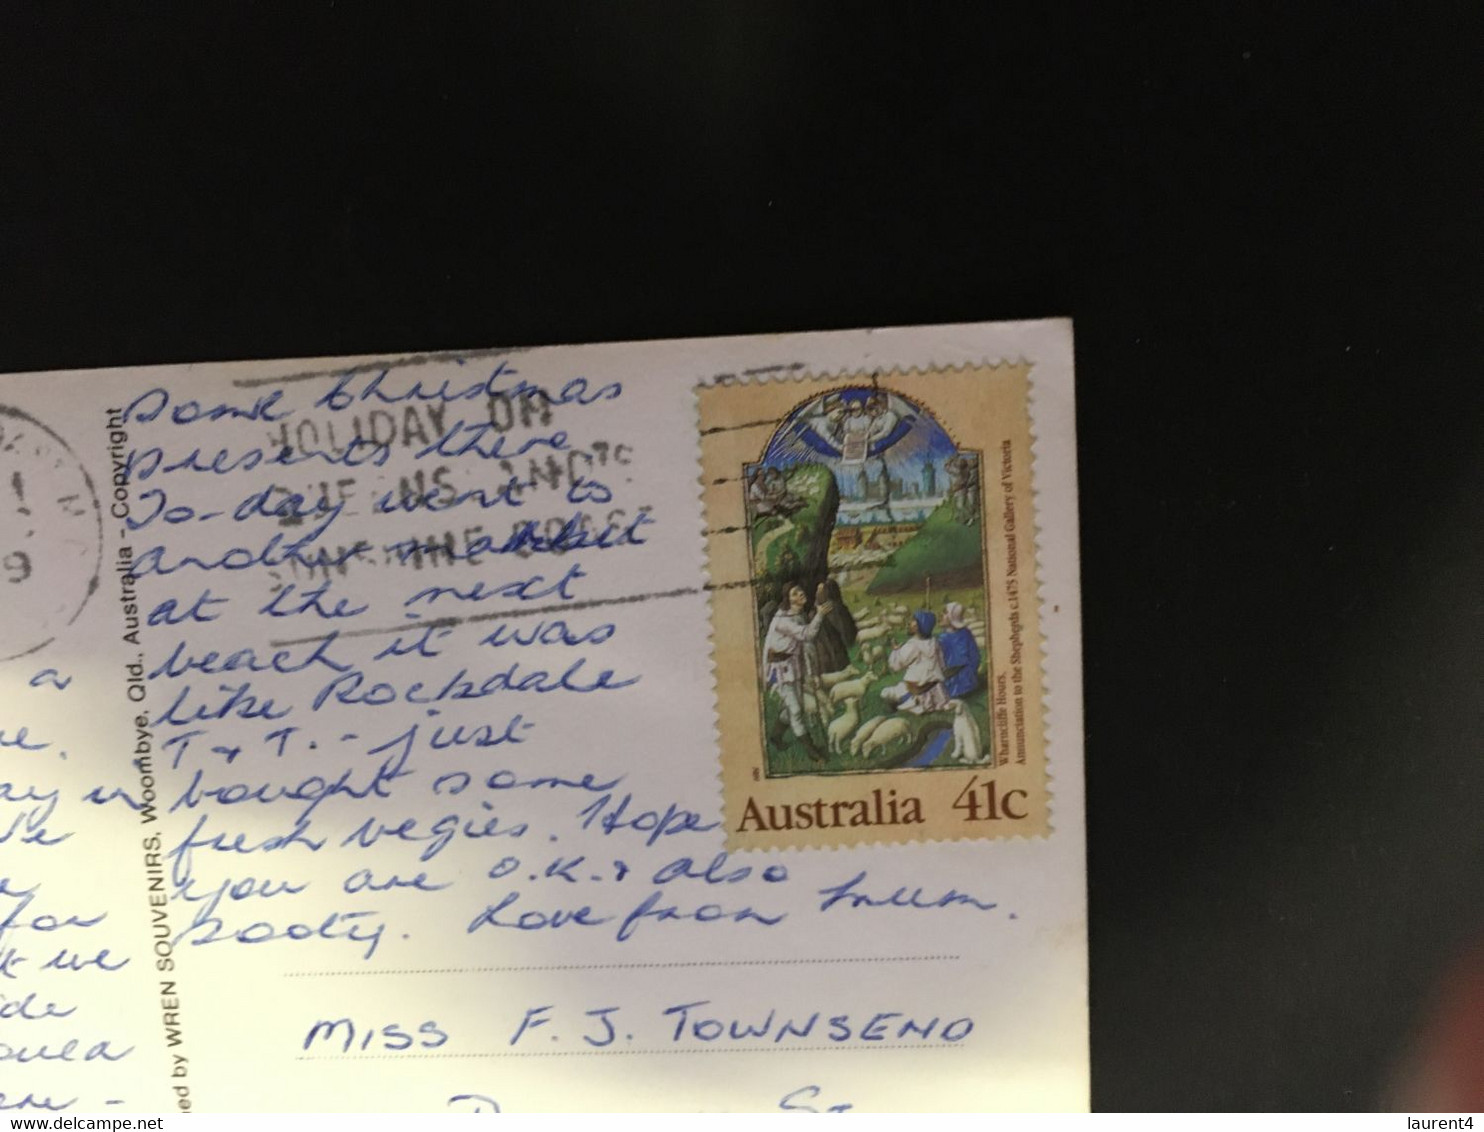 Some Christmas
presents there
To-day went to
another market
at the next
beach it was
like Rockdale
T & T. - just
bought some
fresh vegies. Hope
you are O.K. & also
Sooty. Love from Mum.
MISS F. J. TOWNSEND
St
HOLIDAY ON
QUEENSLAND'S
SUNSHINE COAST
9
a
for
we
ned by WREN SOUVENIRS, Woombye, Qld., Australia - Copyright
Wharncliffe Hours.
Annunciation to the Shepherds c.1475 National Gallery of Victoria
Australia 41c
laurent4